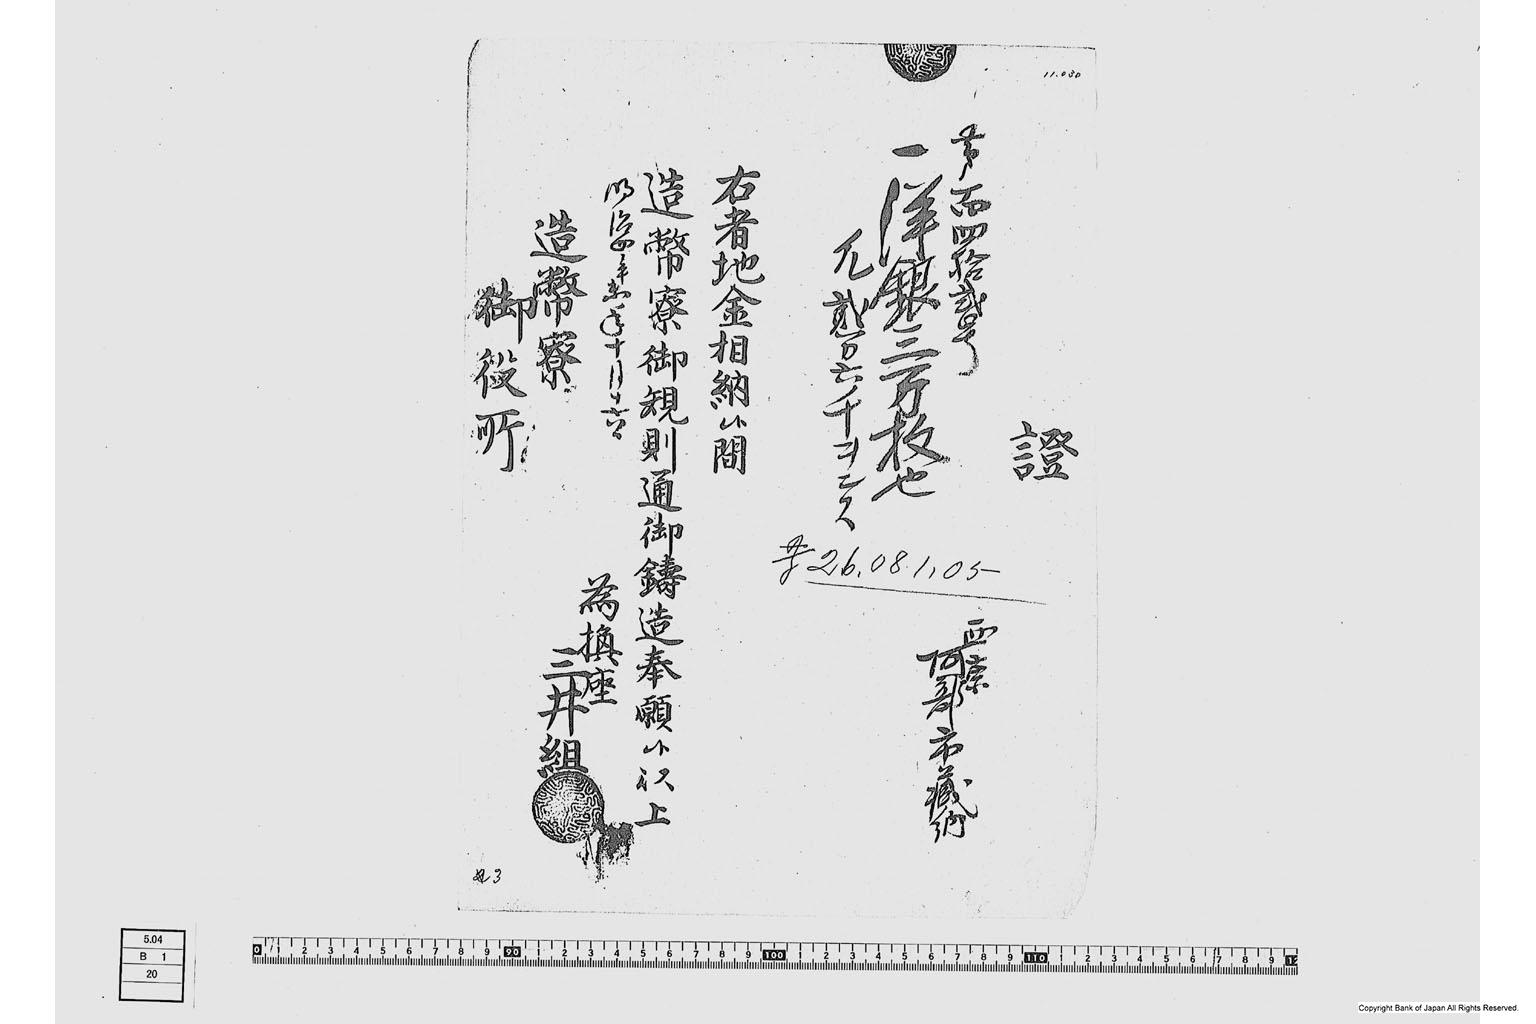 11.030
證
第百四拾貳号
一洋銀三万枚也
凡貳万六千
卅26.08.1,05
西京
阿部市藏納
右者地金相納候間
造幣寮御規則通御鑄造奉願候以上
明治四年
十月
為換座
三井組
造幣寮
御役所
5.04
B 1
20
0 1 2 3 4 5 6 7 8 9 90 1 2 3 4 5 6 7 8 9 100 1 2 3 4 5 6 7 8 9 110 1 2 3 4 5 6 7 8 9 12
Copyright Bank of Japan All Rights Reserved.